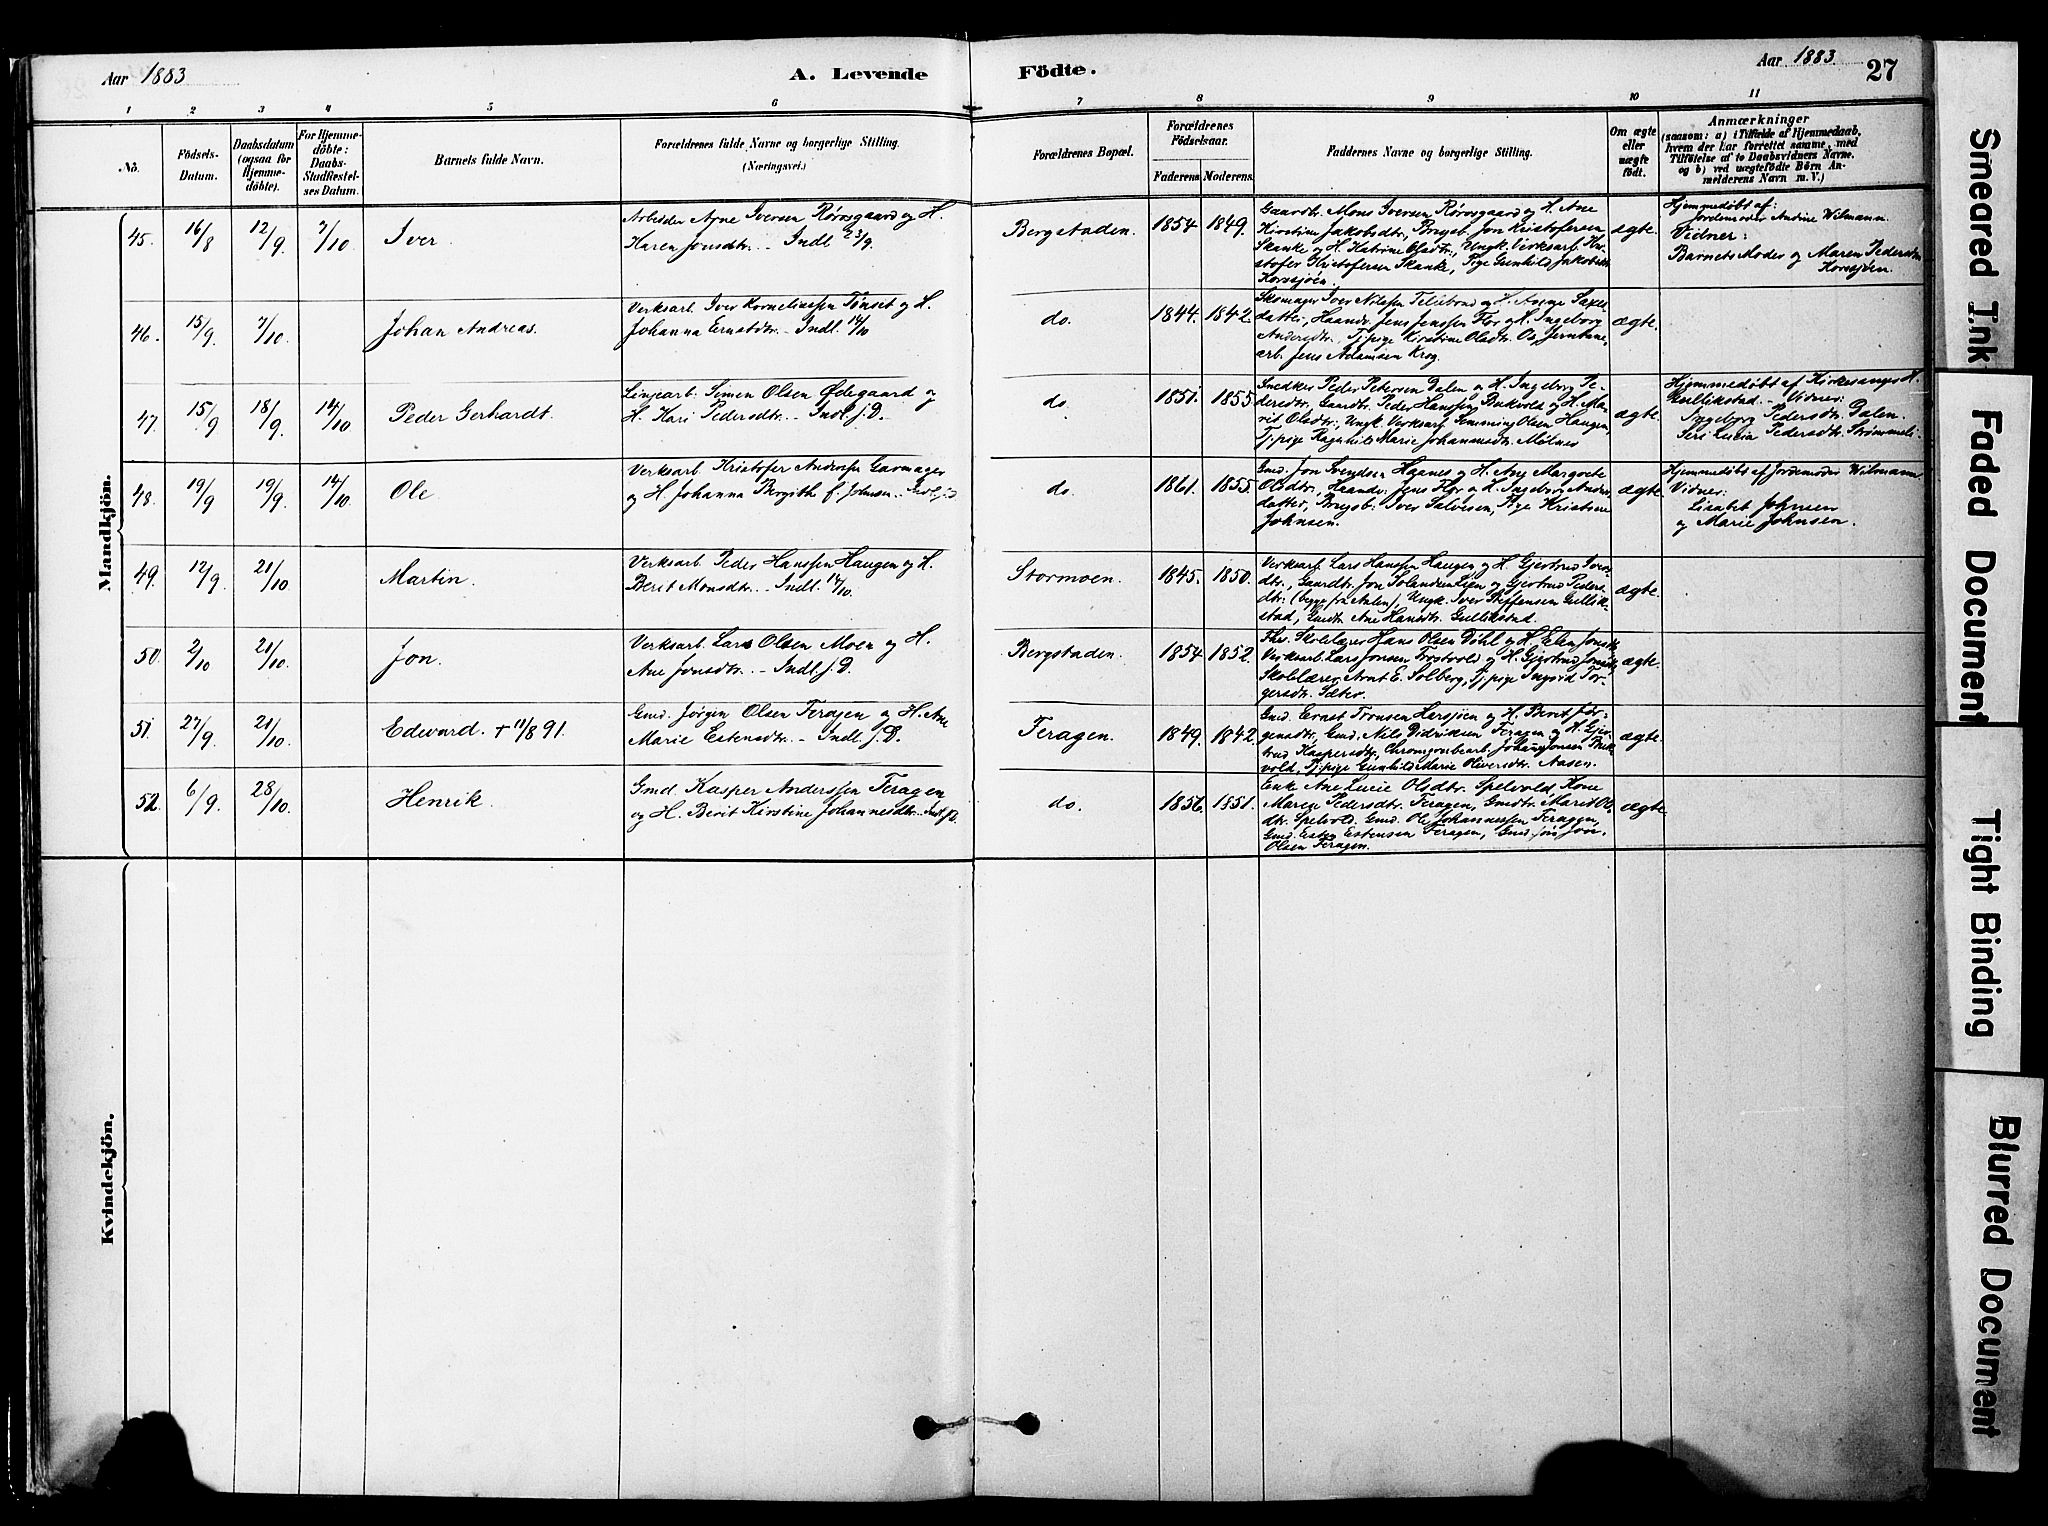 Aar 1883
A. Levende Födte.
Aar 1883.
27
1 2 3 4 5 6 7 8 9 10 11
No.
Födsels-
Datum.
Daabsdatum
(ogsaa for
Hjemme-
döbte).
For Hjemme-
döbte:
Daabs-
Stadfæstel-
ses Datum.
Barnets fulde Navn.
Forældrenes fulde Navne og borgerlige Stilling.
(Næringsvei.)
Forældrenes Bopæl.
Forældrenes
Födselsaar.
Faderens. Moderens.
Faddernes Navne og borgerlige Stilling.
Om ægte
eller
uægte
födt.
Anmærkninger
(saasom: a) i Tilfælde af Hjemmedaab,
hvem der har forrettet samme, med
Tilföielse af to Daabsvidners Navne,
og b) ved uægtefödte Börn An-
melderens Navn m. V.)
Mandkjön.
45. 16/8 12/9 7/10 Iver.
Arbeider Arne Iversen Rørosgaard og H.
Karen Jonsdtr. - Indl. 23/9.
Bergstaden. 1854. 1849.
Gaardbr. Mons Iversen Rørosgaard og H. Ane
Kirstine Jakobsdtr., Brugsb. Jon Kristofersen
Skanke og H. Katrine Olsdtr., Ungk. Verksarb. Kri-
stofer Kristofersen Skanke, Pige Gunhild Jakobsdtr.
Korssjøen.
ægte.
Hjemmedøbt af:
Jordemoder Andine Wilmann.
Vidner:
Barnets Moder og Maren Pedersdtr.
Korssjøen.
46. 15/9 7/10 Johan Andreas.
Verksarb. Iver Korneliussen Tønset og H.
Johanna Ernstdtr. - Indl. 14/10
do. 1844. 1842.
Skomager Iver Nilssen
datter, Haandv. Jens Jenssen Flor og H. Ingeborg
Andersdtr., Tj. pige Kirstine Olsdtr. Os,
arb. Jens Adamsen Krog.
ægte.
47. 15/9 18/9 14/10 Peder Gerhardt.
Linjearb. Simen Olsen Ødegaard og
H. Kari Pedersdtr. - Indl. s. D.
do. 1851. 1855.
Snedker Peder Petersen Dalen og H. Ingeborg Pe-
dersdtr., Gaardbr. Peder Hanssen Bukvold og H. Ma-
rit Olsdtr., Ungk. Verksarb. Hemming Olsen Haugen,
Tj. pige Ragnhild Marie Johannesdtr. Molnes
ægte.
Hjemmedøbt af Kirkesanger H.
Gullikstad. - Vidner:
Ingeborg Pedersdtr. Dalen.
Seri Lucia Pedersdtr. Strømmeli.
48. 19/9 19/9 14/10 Ole
Verksarb. Kristofer Anderssen Garmager
og H. Johanna Bergith f. Johnsen. - Indl. s. D.
do. 1861. 1855.
Gmd. Jon Svendsen Haanes og H. Ane Margrete
Olsdtr., Haandv. Jens Flor og H. Ingeborg Anders-
datter, Brugsb. Iver Salvesen, Pige Kristine
Johnsen.
ægte.
Hjemmedøbt af Jordemoder Wilmann.
Vidner:
Lisabet Johnsen
og Marie Johnsen.
49. 12/9 21/10 Martin.
Verksarb. Peder Hanssen Haugen og H.
Berit Monsdtr. - Indl. 14/10.
Stormoen. 1845. 1850.
Verksarb. Lars Hanssen Haugen og H. Gjertrud Ivers-
dtr., Gaardbr. Jon Lien og Gjertrud Peders-
dtr. (begge fra Aalen), Ungk. Iver Steffensen Gullik-
stad, Gmdtr. Ane Hansdtr. Gullikstad.
ægte.
50. 2/10 21/10 Jon.
Verksarb. Lars Olsen Moen og H.
Ane Jonsdtr. - Indl. s. D.
Bergstaden. 1854. 1852.
Fhv. Skolelærer Hans Olsen Døhl og H. Elen Jonsdtr.
Verksarb. Lars Jonsen Trøstvold og H. Gjertrud Jonsdtr.,
Skolelærer Arnt E. Solberg, Tj. pige Ingrid Tor-
gersdtr. Sæter.
ægte.
51. 27/9 21/10 Edevard. + 11/8 91.
Gmd. Jørgen Olsen Feragen og H. Ane
Marie Estensdtr. - Indl. s. D.
Feragen. 1849. 1842.
Gmd. Ernst Tronsen Hersjøen og H. Berit Jør-
gensdtr. Gmd. Nils Didriksen Feragen og H. Gjer-
trud Kaspersdtr., Chromgrubearb. Johan Jonsen Buk-
vold, Tj. pige Gunhild Marie Oliversdtr. Aasen.
ægte.
52. 6/9. 28/10. Henrik.
Gmd. Kasper Anderssen Feragen
og H. Berit Kirstine Johannesdtr. - Indl. s. D.
do. 1856. 1851.
Enke Ane Lucie Olsdtr. Spelvold, Kone
Maren Pedersdtr. Feragen, Gmdtr. Marit Ols-
dtr. Spelvold. Gmd. Ole Johannessen Feragen,
Gmd. Esten Estensen Feragen, Gmd. Jon
Olsen Feragen.
ægte
Kvindekjön.
Smeared Ink
Faded Document
Tight Binding
Blurred Document